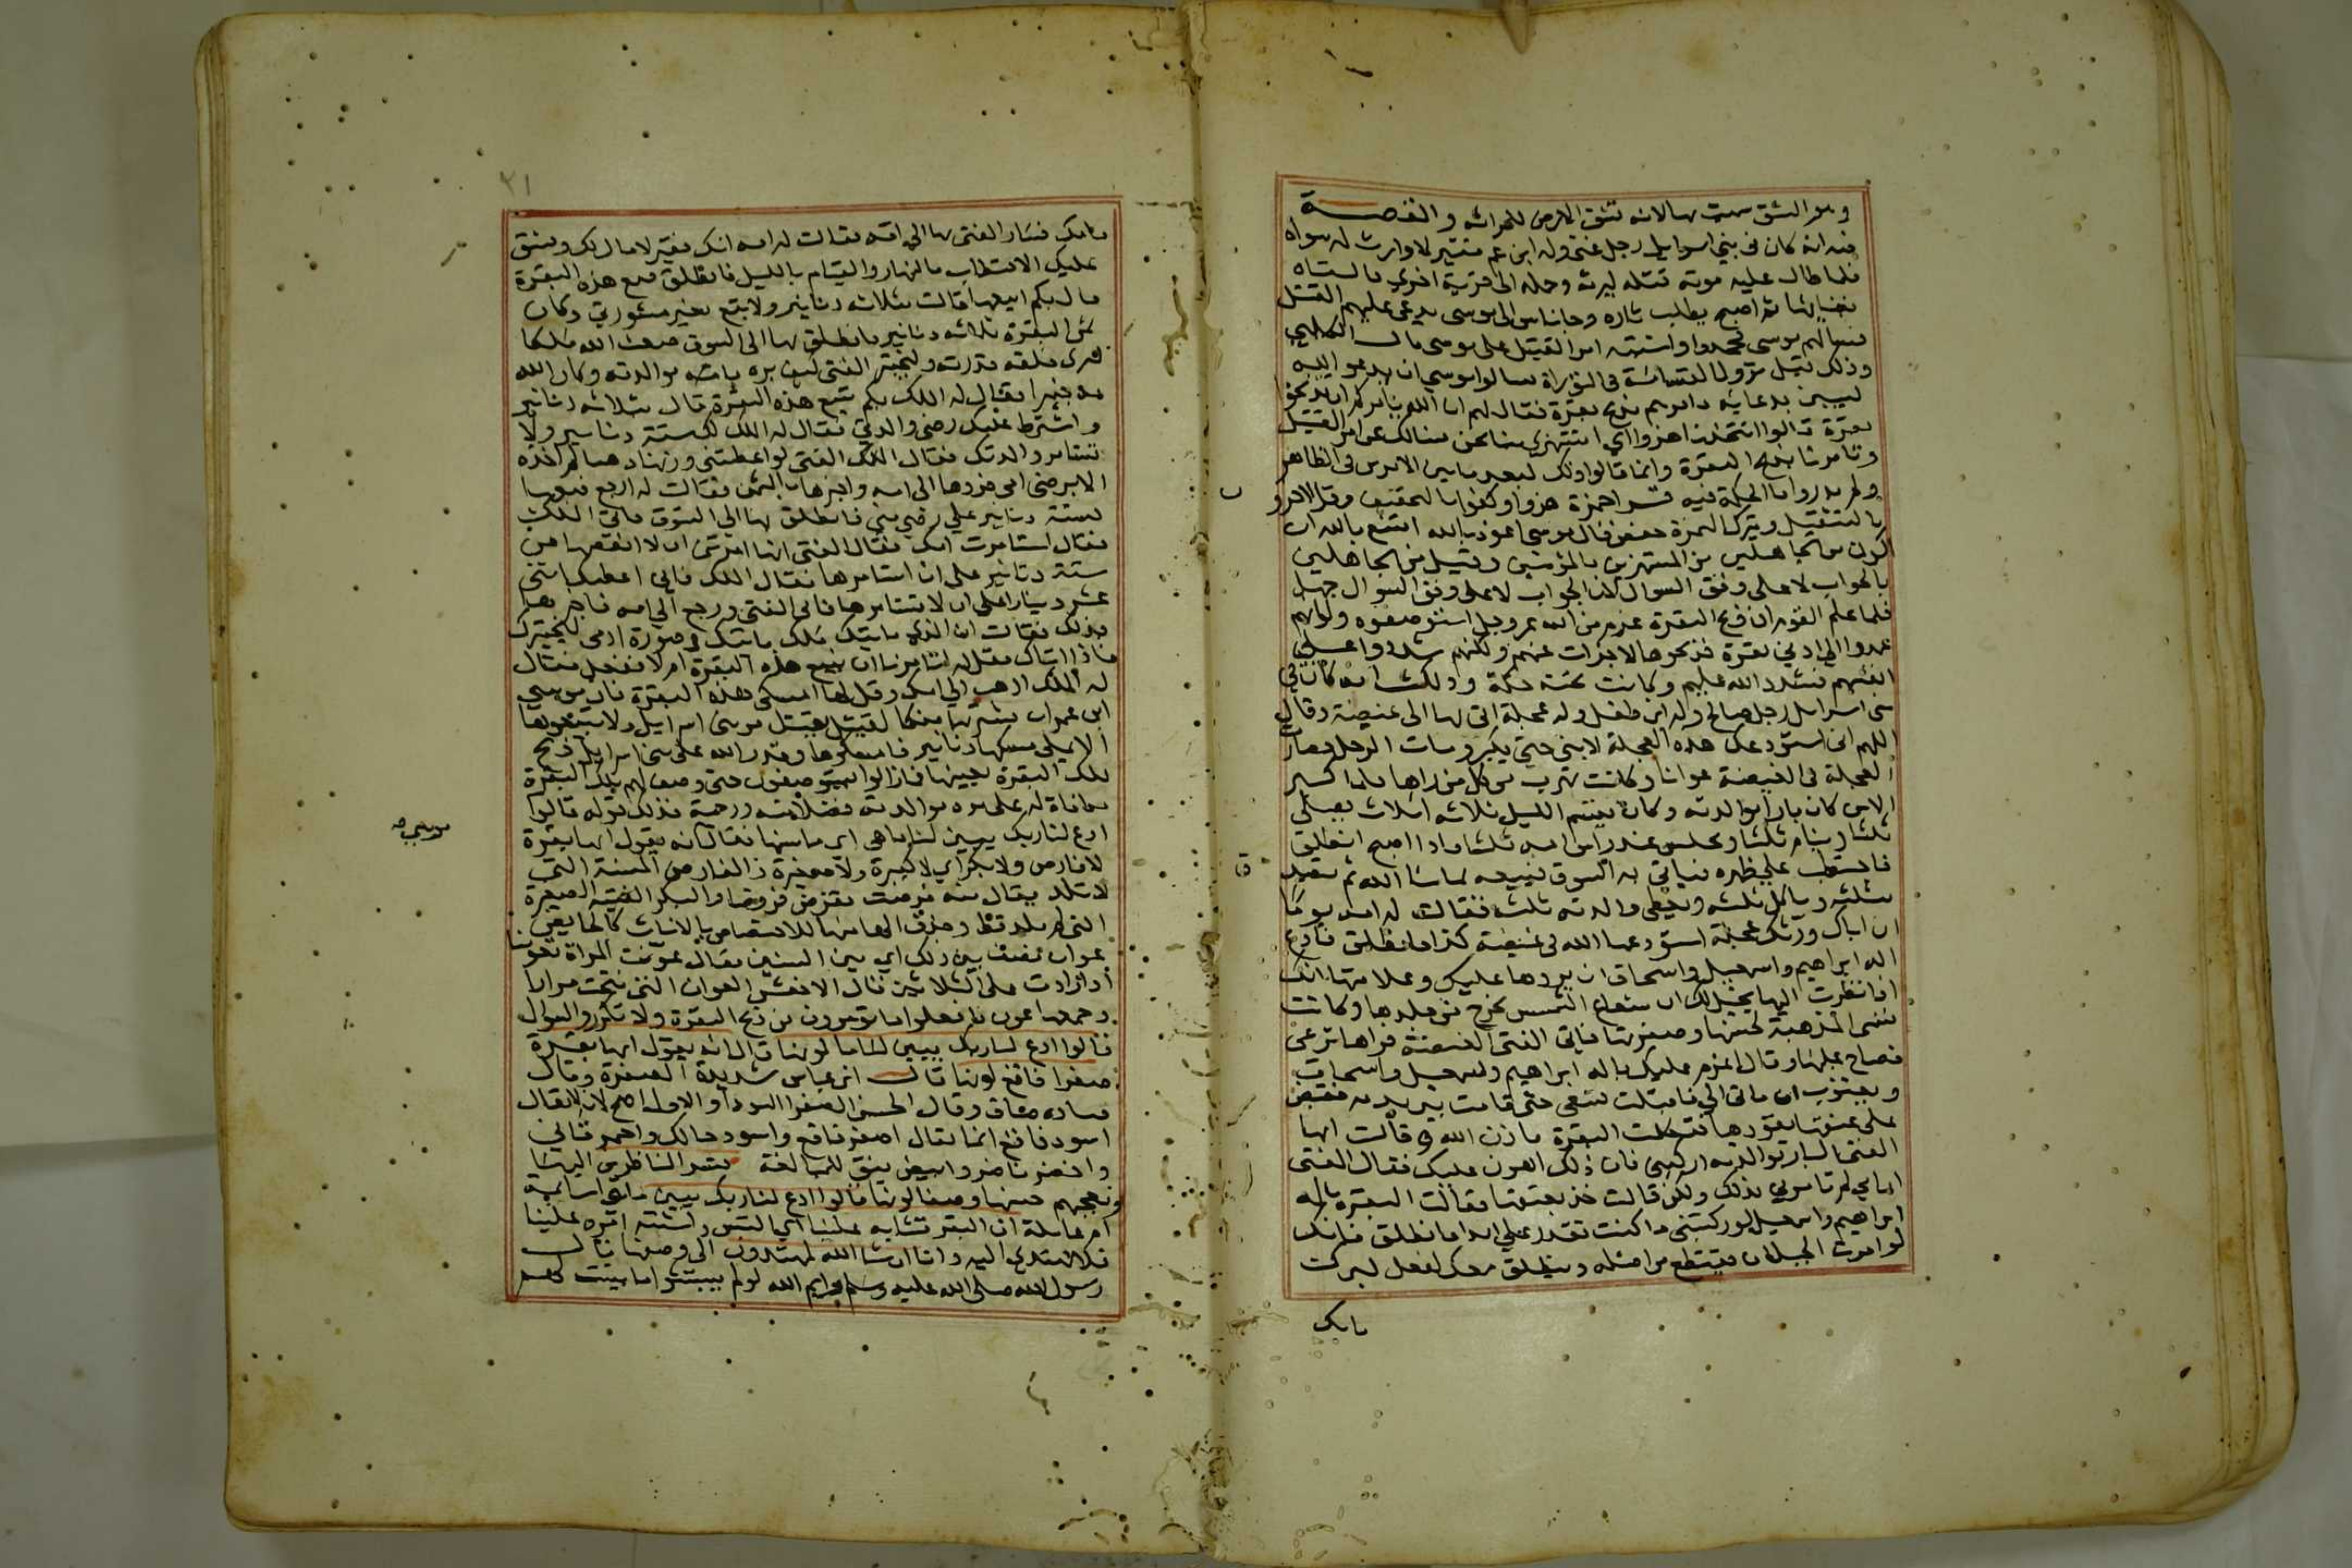 وهو الشق سميت بها لانه تشق الارض للحراثة والقصة
فيه انه كان فى بني اسرايل رجل غنى وله ابن عم فقير لا وارث له سواه
فلما طال عليه موته قتله ليرثه وحمله الى قرية اخرى والقاه
بفنائها ثم اصبح يطلب ثاره وجا بناس الى موسى يدعى عليهم القتل
فسالهم موسى فجحدوا واشتبه امر القتيل على موسى قال الكلبي
وذلك قبل نزول القسامة فى التوراة فسالوا موسى ان يدعو الله
ليبين بدعايه فامرهم بذبح بقرة فقال لهم ان الله يامركم ان تذبحوا
بقرة قالوا اتتخذنا هزوا اي تستهزي بنا نحن نسالك عن امر القتيل
وتامرنا بذبح البقرة وانما قالوا ذلك لبعد ما بين الامرين فى الظاهر
ولم يدروا ما الحكمة فيه قرا حمزة هزوا وكفوا بالتخفيف وقرا الاخرون
بالتثقيل ويترك الهمزة حفص قال موسى اعوذ بالله امتنع بالله ان
اكون من الجاهلين من المستهزين بالمؤمنين وقيل من الجاهلين
بالجواب لا على وفق السوال لان الجواب لا على وفق السوال جهل
فلما علم القوم ان ذبح البقرة عزم من الله عز وجل استوصفوه ولو انهم
عمدوا الى ادنى بقرة فذبحوها لاجزات عنهم ولكنهم شددوا على
انفسهم فشدد الله عليهم وكانت تحته حكمة وذلك انه كان فى
بنى اسرايل رجل صالح وله ابن طفل وله عجلة اتى بها الى غيضة وقال
اللهم انى استودعك هذه العجلة لابنى حتى يكبر ومات الرجل فصارت
العجلة فى الغيضة عوانا وكانت تهرب من كل من راها فلما كبر
الابن كان بارا بوالدته وكان يقسم الليل ثلاثة اثلاث يصلى
ثلثا وينام ثلثا ويجلس عند راس امه ثلثا فاذا اصبح انطلق
فاحتطب على ظهره فياتى به السوق فيبيعه بما شا الله ثم يتصدق
بثلثه وياكل ثلثه ويعطى والدته ثلثه فقالت له امه يوما
ان اباك ورثك عجلة استودعها الله فى غيضة كذا فانطلق فادع
اله ابراهيم واسمعيل واسحاق ان يردها عليك وعلامتها انك
اذا نظرت اليها يخيل لك ان شعاع الشمس يخرج من جلدها وكانت
تسمى المذهبة لحسنها وصفرتها فاتى الفتى الغيضة فراها ترعى
فصاح بها وقال اعزم عليك باله ابراهيم واسمعيل واسحاق
ويعقوب ان تاتى الى فاقبلت تسعى حتى قامت بين يديه فقبض
على عنقها يقودها فتكلمت البقرة باذن الله وقالت ايها
الفتى البار بوالدته اركبنى فان ذلك اهون عليك فقال الفتى
ان امى لم تامرني بذلك ولكن قالت خذ بعنقها فقالت البقرة باله
ابراهيم واسمعيل لو ركبتنى ما كنت تقدر على ابدا فانطلق فانك
لو امرت الجبل ان ينقطع من اصله وينطلق معك لفعل لبرك
بامك
ب
ق
٢١
بامك فسار الفتى بها الى امه فقالت له امه انك فقير لا مال لك ويشق
عليك الاحتطاب بالنهار والقيام بالليل فانطلق فبع هذه البقرة
قال بكم ابيعها قالت بثلاثة دنانير ولا تبع بغير مشورتي وكان
ثمن البقرة ثلاثة دنانير فانطلق بها الى السوق فبعث الله ملكا
ليرى خلقه قدرته وليختبر الفتى كيف بره بوالدته وكان الله
به خبيرا فقال له الملك بكم تبيع هذه البقرة قال بثلاثة دنانير
واشترط عليك رضى والدتي فقال له الملك لك ستة دنانير ولا
تستامر والدتك فقال الفتى لو اعطيتنى وزنها ذهبا لم اخذه
الا برضى امى فردها الى امه واخبرها بالثمن فقالت له ارجع فبعها
بستة دنانير على رضى منى فانطلق بها الى السوق فاتى الملك
فقال استامرت امك فقال الفتى انها امرتنى ان لا انقصها من
ستة دنانير على ان استامرها فقال الملك فانى اعطيك اثنى
عشر دينارا على ان لا تستامرها فابى الفتى ورجع الى امه فاخبرها
بذلك فقالت ان الذى ياتيك ملك ياتيك فى صورة ادمى ليختبرك
فاذا اتاك فقل له اتامرنا ان نبيع هذه البقرة ام لا ففعل فقال
له الملك اذهب الى امك وقل لها امسكى هذه البقرة فان موسى
ابن عمران يشتريها منكم لقتيل يقتل من بنى اسرايل ولا تبيعوها
الا بملى مسكها دنانير فامسكوها وقدر الله على بنى اسرايل ذبح
تلك البقرة بعينها فما زالوا يستوصفون حتى وصف لهم تلك البقرة
مكافاة له على بره بوالدته فضلا منه ورحمة فذلك قوله قالوا
ادع لنا ربك يبين لنا ما هى اى ما سنها فقال انه يقول انها بقرة
لا فارض ولا بكر اي لا كبيرة ولا صغيرة فالفارض المسنة التى
لا تلد يقال منه فرضت تفرض فروضا والبكر الفتية الصغيرة
التى لم تلد قط وحذف الها منها للاختصاص بالاناث كالحايض
عوان نصف بين ذلك اي بين السنين يقال عونت المراة تعوينا
اذا زادت على الثلاثين قال الاخفش العوان التى نتجت مرارا
وجمعها عون فافعلوا ما تومرون من ذبح البقرة ولا تكثروا السوال
قالوا ادع لنا ربك يبين لنا ما لونها قال انه يقول انها بقرة
صفرا فاقع لونها قال ابن عباس شديدة الصفرة وقال
قتادة صاف وقال الحسن الصفرا السودا والاول اصح لانه لا يقال
اسود فاقع انما يقال اصفر فاقع واسود حالك واحمر قانى
واخضر ناضر وابيض يقق للمبالغة تسر الناظرين اليها
وتعجبهم حسنها وصفا لونها قالوا ادع لنا ربك يبين لنا ما هى اسايمة
ام عاملة ان البقر تشابه علينا اي التبس واشتبه امره علينا
فلا نهتدى اليه وانا ان شا الله لمهتدون الى وصفها قال
رسول الله صلى الله عليه وسلم وايم الله لو لم يستثنوا ما بينت لهم